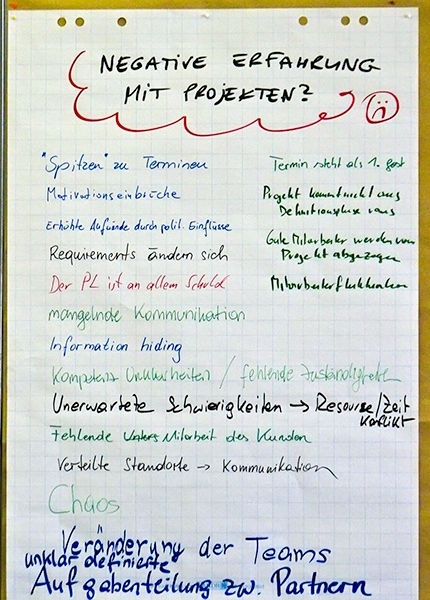 NEGATIVE ERFAHRUNG
MIT PROJEKTEN?
"Spitzen" zu Terminen
Motivationseinbrüche
Erhöhte Aufwände durch polit. Einflüsse
Requirements ändern sich
Der PL ist an allem Schuld
mangelnde Kommunikation
Information hiding
Kompetenz Unklarheiten / fehlende Zuständigkeiten
Unerwartete Schwierigkeiten → Resourse/Zeit
Konflikt
Fehlende Mitarbeit des Kunden
Verteilte Standorte → Kommunikation
Chaos
Veränderung der Teams
unklar definierte
Aufgabenteilung zw. Partnern
Termin steht als 1. fest
Projekt kommt nicht aus
Definitionsphase raus
Gute Mitarbeiter werden von
Projekt abgezogen
Mitarbeiterfluktuation